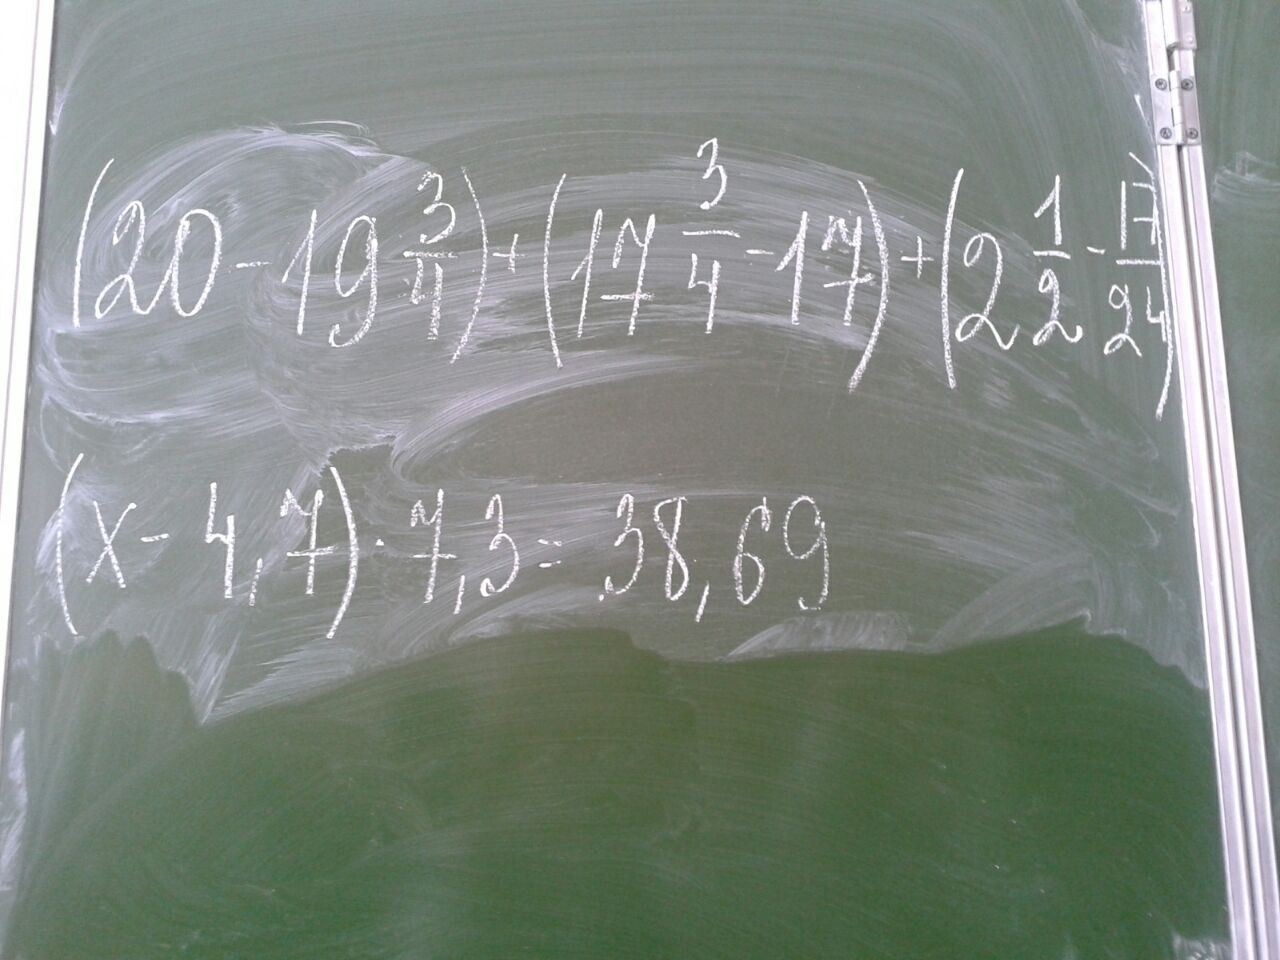 (20 - 19 3/4) + (17 3/4 - 17) + (2 1/2 - 17/24)
(x - 4,7) · 7,3 = 38,69